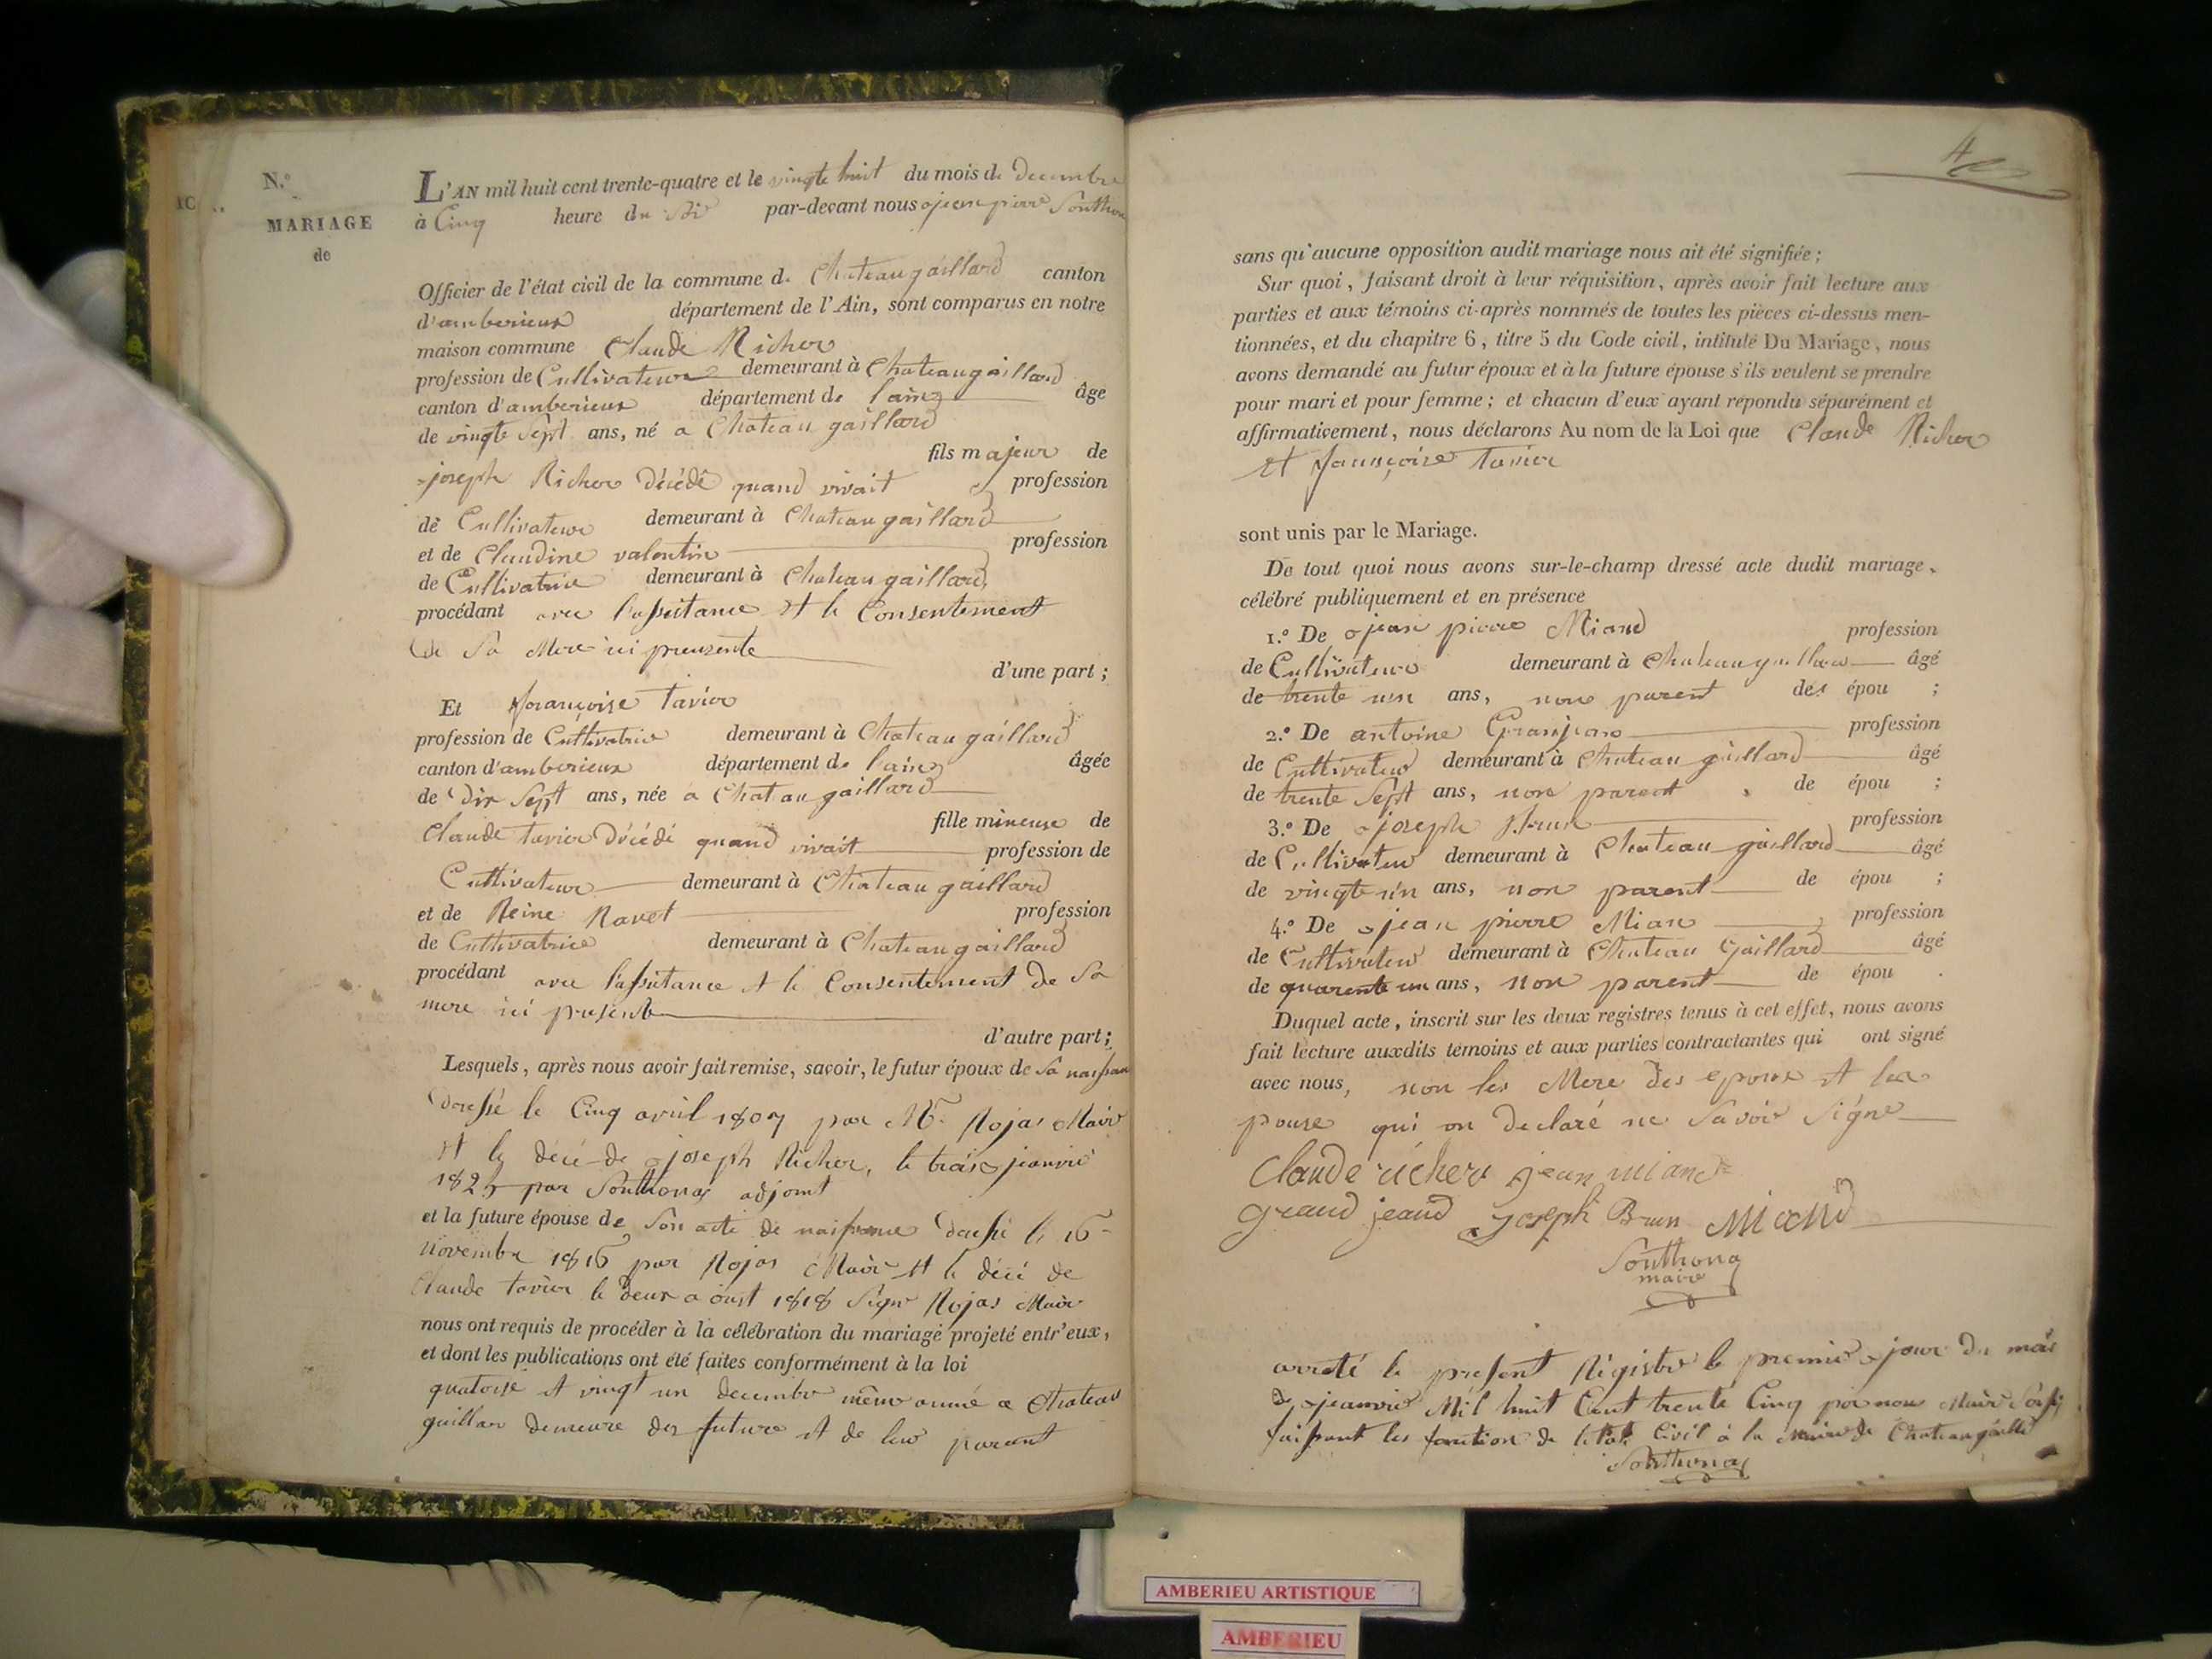 N.º
MARIAGE
de
L'AN mil huit cent trente-quatre et le vingte huit du mois de decembre
à Cinq heure du Soir par-devant nous jean pierre Southon
Officier de l'état civil de la commune de Chateaugaillard canton
d'amberieux département de l'Ain, sont comparus en notre
maison commune Claude Richer
profession de Cultivateur demeurant à Chateaugaillard
canton d'amberieux département de lain âge
de vingte Sept ans, né a Chateau gaillard
fils majeur de
joseph Richer décédé quand vivait profession
de Cultivateur demeurant à Chateau gaillard
et de Claudine valentin profession
de Cultivatrice demeurant à Chateau gaillard
procédant avec l'assistance et le Consentement
de Sa Mere ici preuzente
d'une part ;
Et françoise tavier
profession de Cultivatrice demeurant à Chateau gaillard
canton d'amberieux département de lain âgée
de dix Sept ans, née a Chatau gaillard
fille mineuse de
Claude tavier décédé quand vivait profession de
Cultivateur demeurant à Chateau gaillard
et de Reine Ravet profession
de Cultivatrice demeurant à Chateau gaillard
procédant avec l'assistance et le Consentement de Sa
mere ici presente
d'autre part ;
Lesquels, après nous avoir fait remise, savoir, le futur époux de Sa naissan
dressé le Cinq avril 1807 par Mr. Rojas Maire
et le décé de joseph Richer, le trois janvié
par Southonax adjoint
et la future épouse de Son acte de naissance dressé le 16
novembre 1816 par Rojas Maire et le décé de
Claude tavier le deux aoust 1818 Signe Rojas Maire
nous ont requis de procéder à la célébration du mariage projeté entr'eux,
et dont les publications ont été faites conformément à la loi
quatorse et vingt un decembre même anné a Chateau
gaillar demeure des future et de leur parent
4
sans qu'aucune opposition audit mariage nous ait été signifiée ;
Sur quoi, faisant droit à leur réquisition, après avoir fait lecture aux
parties et aux témoins ci-après nommés de toutes les pièces ci-dessus men-
tionnées, et du chapitre 6, titre 5 du Code civil, intitulé Du Mariage, nous
avons demandé au futur époux et à la future épouse s'ils veulent se prendre
pour mari et pour femme ; et chacun d'eux ayant répondu séparément et
affirmativement, nous déclarons Au nom de la Loi que Claude Richer
et françoise tavier
sont unis par le Mariage.
De tout quoi nous avons sur-le-champ dressé acte dudit mariage,
célébré publiquement et en présence
1.º De jean pierre Miand profession
de Cultivateur demeurant à Chateau gaillard âgé
de trente un ans, non parent des épou ;
2.º De antoine Granjean profession
de Cultivateur demeurant à Chateau gaillard âgé
de trente Sept ans, non parent de épou ;
3.º De joseph Brun profession
de Cultivateur demeurant à Chateau gaillard âgé
de vingte un ans, non parent de épou ;
4.º De jean pierre Mian profession
de Cultivateur demeurant à Chateau Gaillard âgé
de quarente un ans, non parent de épou .
Duquel acte, inscrit sur les deux registres tenus à cet effet, nous avons
fait lecture auxdits témoins et aux parties contractantes qui ont signé
avec nous, non les Mere des epoux et lea
pouse qui on declaré ne Savoir Signe
Claude richer jean miand
grand jeand Joseph Brun Miand
Southonax
maire
arreté le present Régistre le premier jour du mois
de jeanvier Mil huit Cent trente Cinq par nous Maire
faisant les fonction de letat Civil à la Mairie de Chateaugaillard
Southonax
AMBERIEU ARTISTIQUE
AMBERIEU